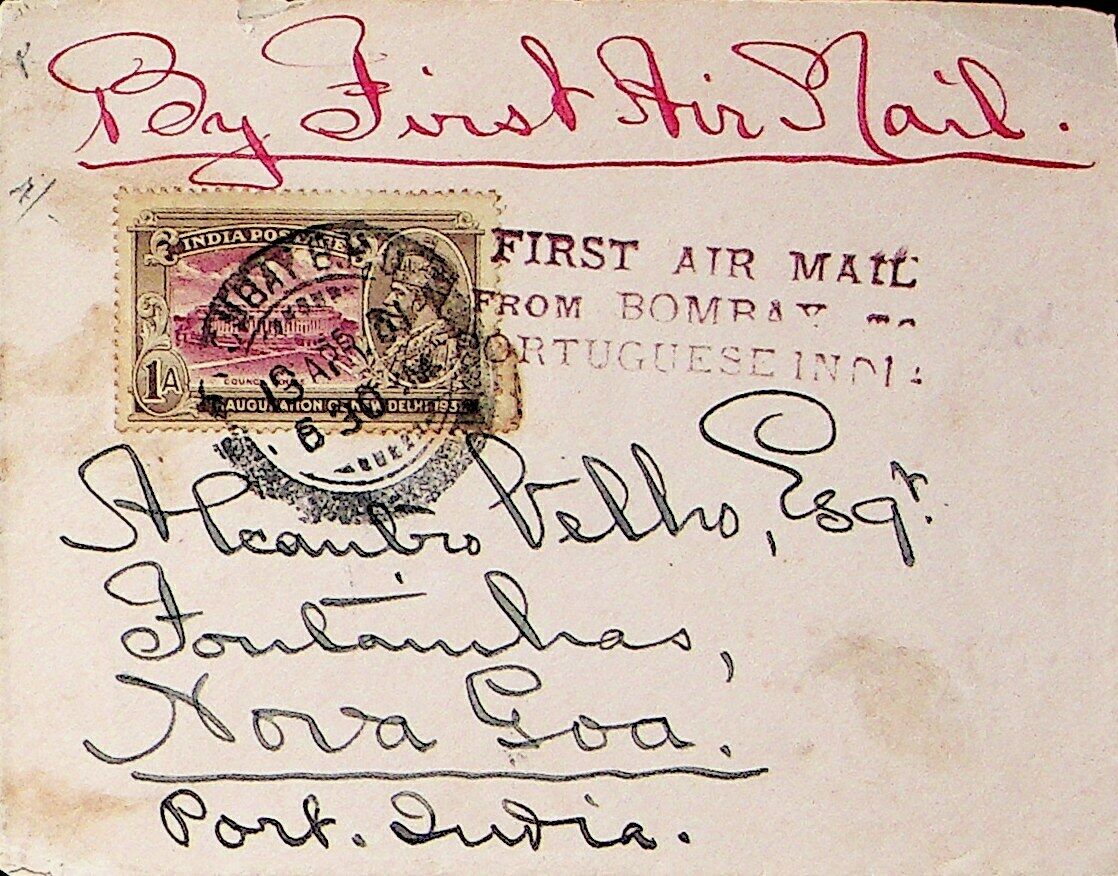 By First Air Mail.
INDIA POSTAGE
1A
COUNCIL
INAUGURATION OF NEW DELHI 1931
BOMBAY
APR
6 30
FIRST AIR MAIL
FROM BOMBAY TO
PORTUGUESE INDIA
Alcantro Velho, Esqr.
Fontainhas,
Nova Goa.
Port. India.